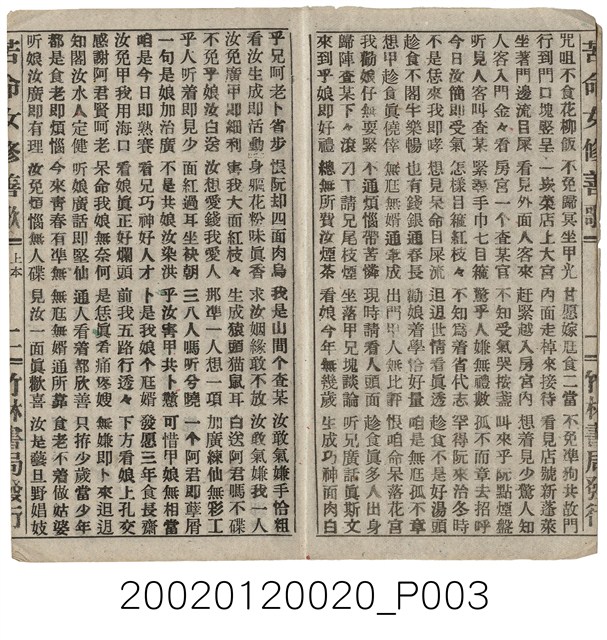 苦命女修善歌 一 竹林書局發行
咒咀不食花柳飯 不免歸冥坐甲光 甘愿嫁尫食二當 不免準狗共故門
行到門口塊竪呈 一崁菜店上大宮 內面走掉來接待 看見店號新蓬萊
坐著門邊流目屎 看見外面人客來 赶緊越入房宮內 想着見少驚人知
人客入門金々看 房宮一个查某官 不知受氣哭按盞 叫來乎阮點煙盤
听見人客叫查某 緊擧手巾七目箍 驚乎人嫌無禮數 孤不而章去招呼
今日汝簡即受氣 怎樣目箍紅枝々 不知為着省代志 罕得阮來治冬時
不是恁來我即哮 想見呆命目屎流 迌迌世情看眞透 趁食不是好湯頭
趁食不閣牛樂暢 也有錢銀通春長 勸娘着學恰好量 咱是無尫孤不章
想甲趁食眞僥倖 無尫無婿通牽成 出門甲人無比評 恨咱命呆落花宮
我勸娘仔無要緊 不通煩惱帶苦憐 現時請看人頭面 趁食眞多人出身
歸陣查某下々滾 刁工請兄尾枝煙 坐落甲兄塊談論 听兄廣話眞斯文
來到乎娘即好禮 總無所費汝煙茶 看娘今年無幾歲 生成巧神面肉白
乎兄呵老卜省步 恨阮却四面肉烏 我是山間个查某 汝敢氣嫌手恰粗
看汝生成即活動 身軀花粉味眞香 求汝姻緣敢不放 汝敢氣嫌我一人
汝免廣甲即細利 害我大面紅枝々 生成猿頭猫鼠耳 白送阿君嗎不碟
不免乎娘汝白送 汝想愛錢我愛人 那準一人想一項 加廣練仙無彩工
乎人听着即見少 面紅過耳坐袂朝 三八人嗎听分曉 一个阿君即孽屑
一句是娘加治廣 不是共娘汝染洪 乎汝害甲共卜戇 可惜甲娘無相當
咱是今日即熟賽 看兄巧神好人才 卜是我娘个尫婿 發愿三年食長齋
汝免甲我用海口 看娘眞正好爛頭 前我五路行透々 下方看娘上孔交
感謝阿君賢呵老 呆命我娘無奈何 是恁眞看痛疼嫂 無嫌即卜來迌迌
知閣汝水人定健 听娘廣話即堅仙 通人看着都欣善 只拵少歲當少年
都是食老即煩惱 今來青春有準無 無尫無婿通所靠 食老不着做姑婆
听娘汝廣即有理 汝免煩惱無人碟 見汝一面眞歡喜 汝是藝旦野娼妓
苦命女修善歌 上本 二 竹林書局發行
20020120020_P003